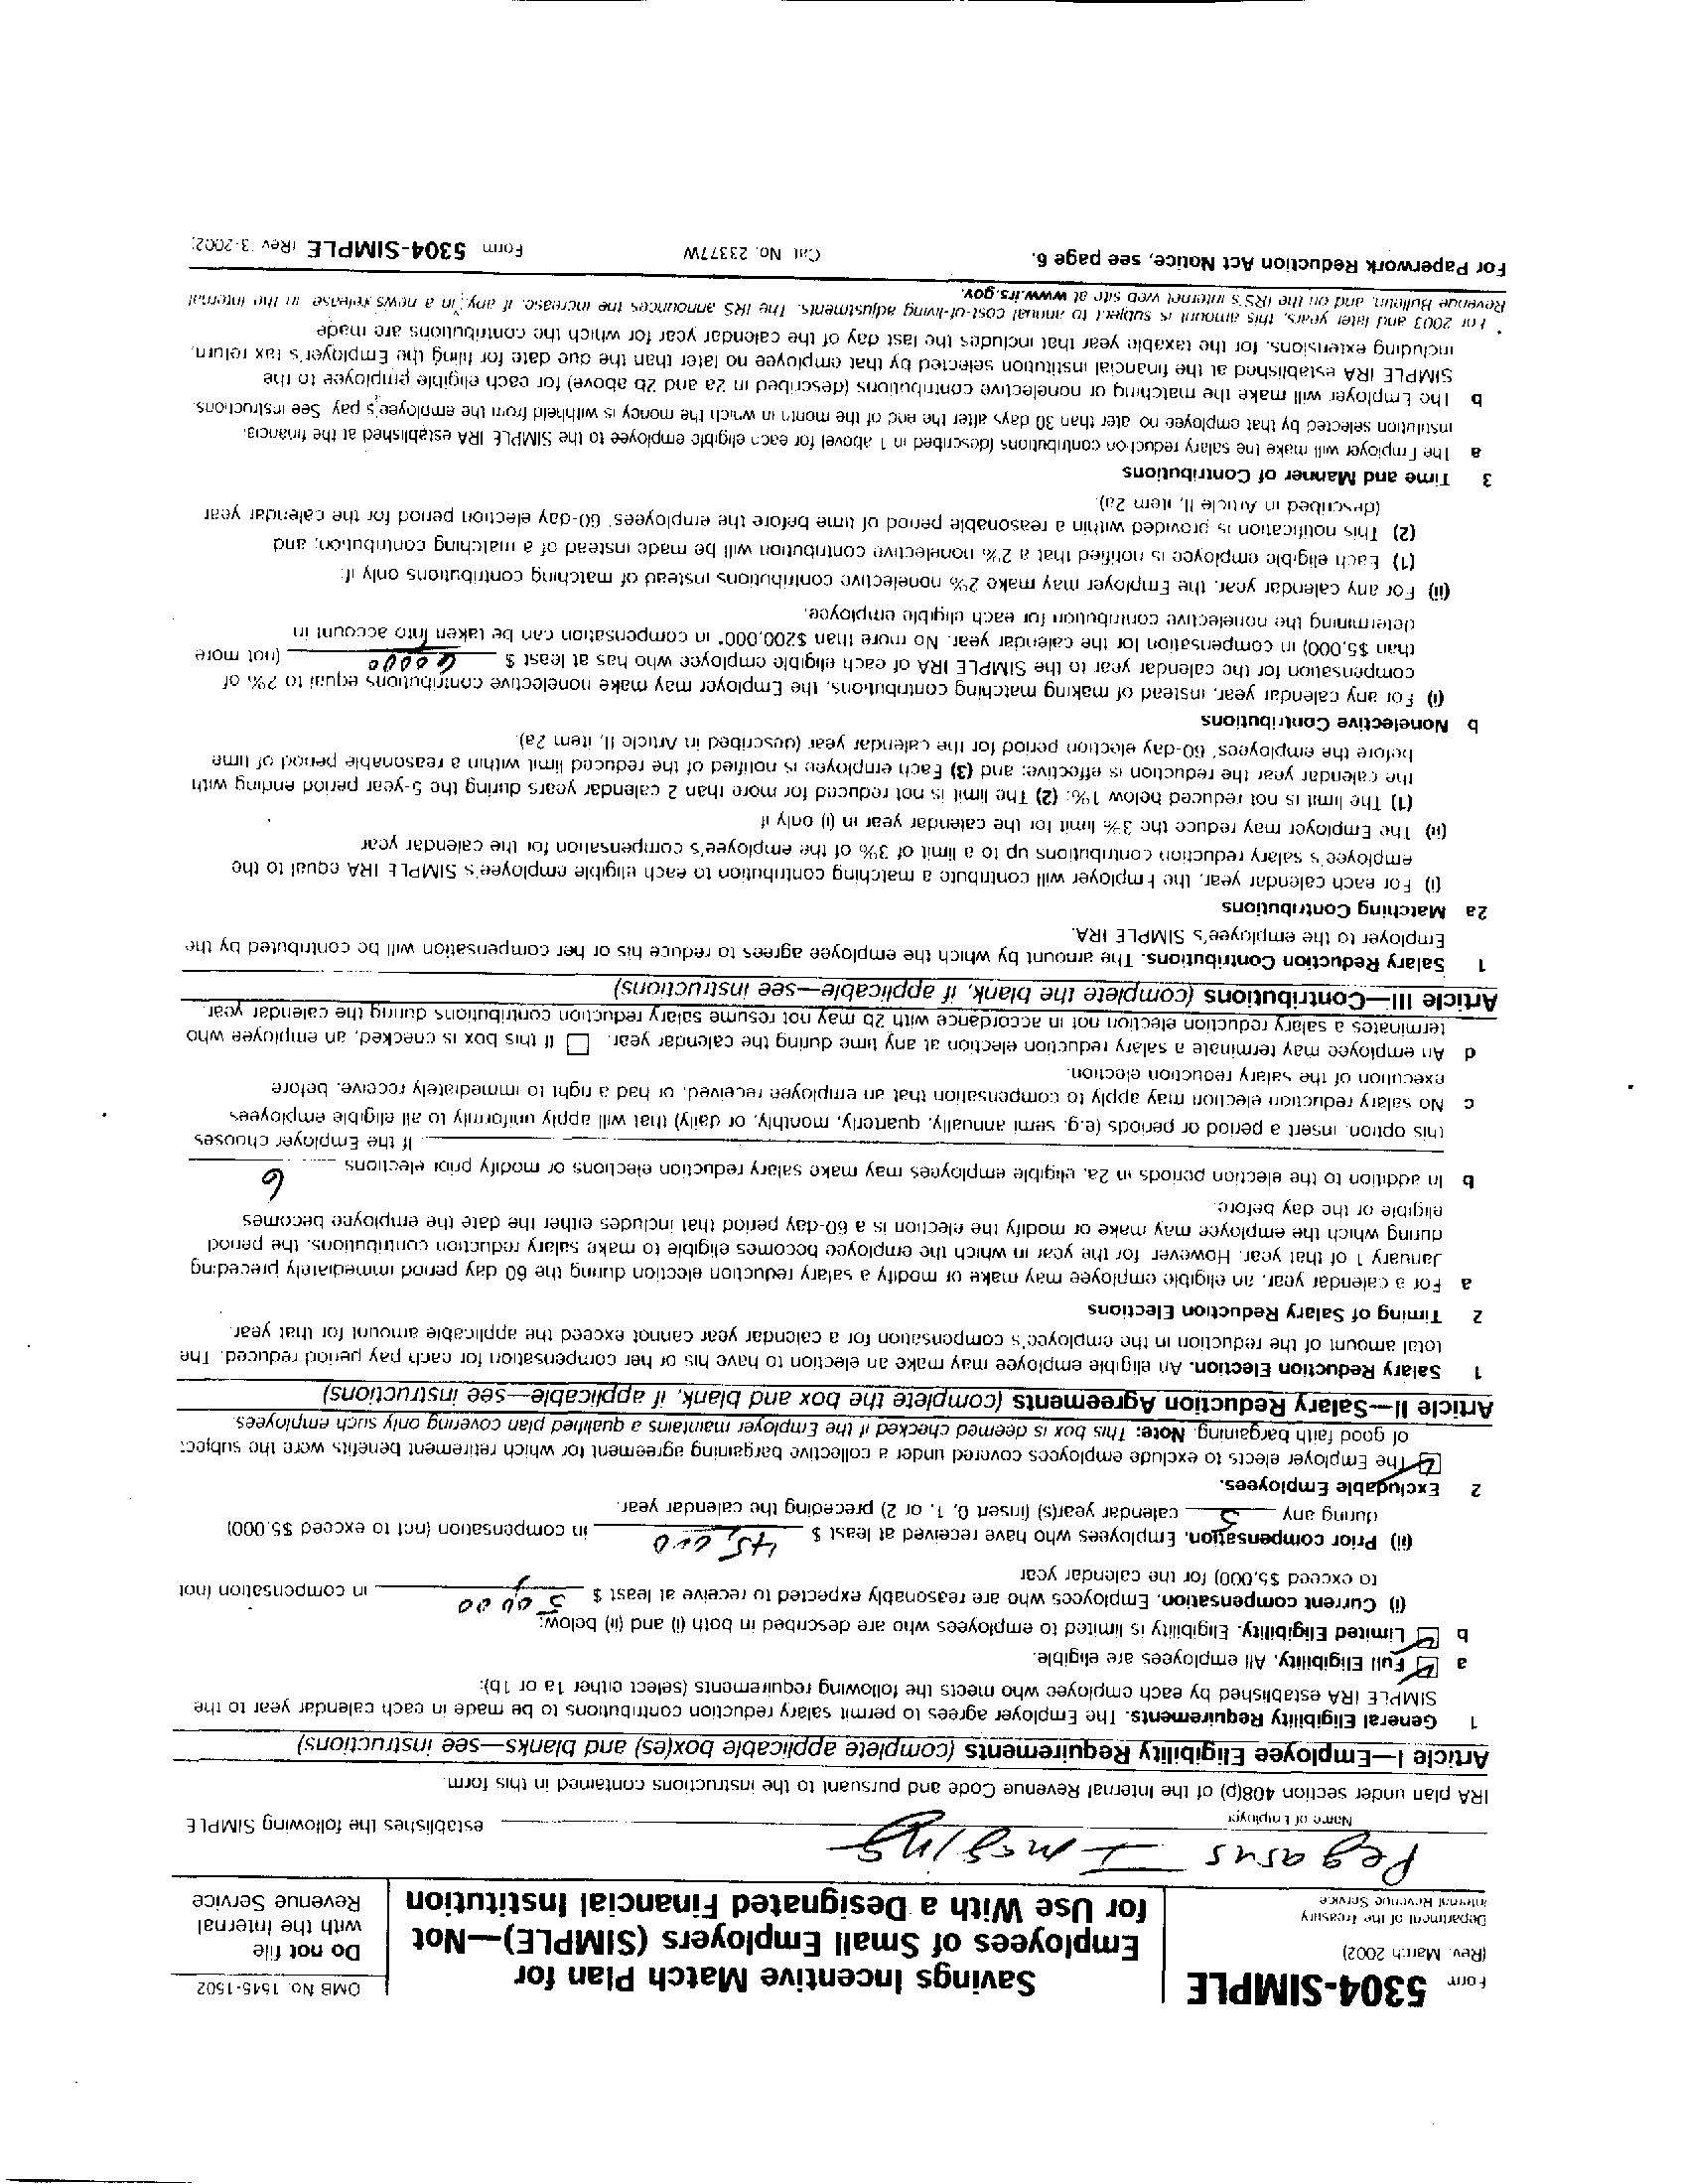 Form 5304-SIMPLE
(Rev. March 2002)
Department of the Treasury
Internal Revenue Service
Savings Incentive Match Plan for
Employees of Small Employers (SIMPLE)—Not
for Use With a Designated Financial Institution
OMB No. 1545-1502
Do not file
with the Internal
Revenue Service
Pegasus
Name of Employer
establishes the following SIMPLE
IRA plan under section 408(p) of the Internal Revenue Code and pursuant to the instructions contained in this form.
Article I—Employee Eligibility Requirements (complete applicable box(es) and blanks—see instructions)
1 General Eligibility Requirements. The Employer agrees to permit salary reduction contributions to be made in each calendar year to the
SIMPLE IRA established by each employee who meets the following requirements (select either 1a or 1b):
a Full Eligibility. All employees are eligible.
b Limited Eligibility. Eligibility is limited to employees who are described in both (i) and (ii) below:
(i) Current compensation. Employees who are reasonably expected to receive at least $ in compensation (not
to exceed $5,000) for the calendar year
(ii) Prior compensation. Employees who have received at least $ 45,000 in compensation (not to exceed $5,000)
during any 5 calendar year(s) (insert 0, 1, or 2) preceding the calendar year.
2 Excludable Employees.
The Employer elects to exclude employees covered under a collective bargaining agreement for which retirement benefits were the subject
of good faith bargaining. Note: This box is deemed checked if the Employer maintains a qualified plan covering only such employees.
Article II—Salary Reduction Agreements (complete the box and blank, if applicable—see instructions)
1 Salary Reduction Election. An eligible employee may make an election to have his or her compensation for each pay period reduced. The
total amount of the reduction in the employee's compensation for a calendar year cannot exceed the applicable amount for that year.
2 Timing of Salary Reduction Elections
a For a calendar year, an eligible employee may make or modify a salary reduction election during the 60 day period immediately preceding
January 1 of that year. However, for the year in which the employee becomes eligible to make salary reduction contributions, the period
during which the employee may make or modify the election is a 60-day period that includes either the date the employee becomes
eligible or the day before.
b In addition to the election periods in 2a, eligible employees may make salary reduction elections or modify prior elections 6
If the Employer chooses
this option, insert a period or periods (e.g. semi annually, quarterly, monthly, or daily) that will apply uniformly to all eligible employees
c No salary reduction election may apply to compensation that an employee received, or had a right to immediately receive, before
execution of the salary reduction election.
d An employee may terminate a salary reduction election at any time during the calendar year. If this box is checked, an employee who
terminates a salary reduction election not in accordance with 2b may not resume salary reduction contributions during the calendar year.
Article III—Contributions (complete the blank, if applicable—see instructions)
1 Salary Reduction Contributions. The amount by which the employee agrees to reduce his or her compensation will be contributed by the
Employer to the employee's SIMPLE IRA.
2a Matching Contributions
(i) For each calendar year, the Employer will contribute a matching contribution to each eligible employee's SIMPLE IRA equal to the
employee's salary reduction contributions up to a limit of 3% of the employee's compensation for the calendar year
(ii) The Employer may reduce the 3% limit for the calendar year in (i) only if
(1) The limit is not reduced below 1%; (2) The limit is not reduced for more than 2 calendar years during the 5-year period ending with
the calendar year the reduction is effective; and (3) Each employee is notified of the reduced limit within a reasonable period of time
before the employees' 60-day election period for the calendar year (described in Article II, item 2a).
b Nonelective Contributions
(i) For any calendar year, instead of making matching contributions, the Employer may make nonelective contributions equal to 2% of
compensation for the calendar year to the SIMPLE IRA of each eligible employee who has at least $ (not more
than $5,000) in compensation for the calendar year. No more than $200,000* in compensation can be taken into account in
determining the nonelective contribution for each eligible employee.
(ii) For any calendar year, the Employer may make 2% nonelective contributions instead of matching contributions only if:
(1) Each eligible employee is notified that a 2% nonelective contribution will be made instead of a matching contribution; and
(2) This notification is provided within a reasonable period of time before the employees' 60-day election period for the calendar year
(described in Article II, item 2a).
3 Time and Manner of Contributions
a The Employer will make the salary reduction contributions (described in 1 above) for each eligible employee to the SIMPLE IRA established at the financial
institution selected by that employee no later than 30 days after the end of the month in which the money is withheld from the employee's pay. See instructions.
b The Employer will make the matching or nonelective contributions (described in 2a and 2b above) for each eligible employee to the
SIMPLE IRA established at the financial institution selected by that employee no later than the due date for filing the Employer's tax return,
including extensions, for the taxable year that includes the last day of the calendar year for which the contributions are made
* For 2003 and later years, this amount is subject to annual cost-of-living adjustments. The IRS announces the increase, if any, in a news release in the Internal
Revenue Bulletin, and on the IRS's internet web site at www.irs.gov.
For Paperwork Reduction Act Notice, see page 6.
Cat. No. 23377W
Form 5304-SIMPLE (Rev. 3-2002)